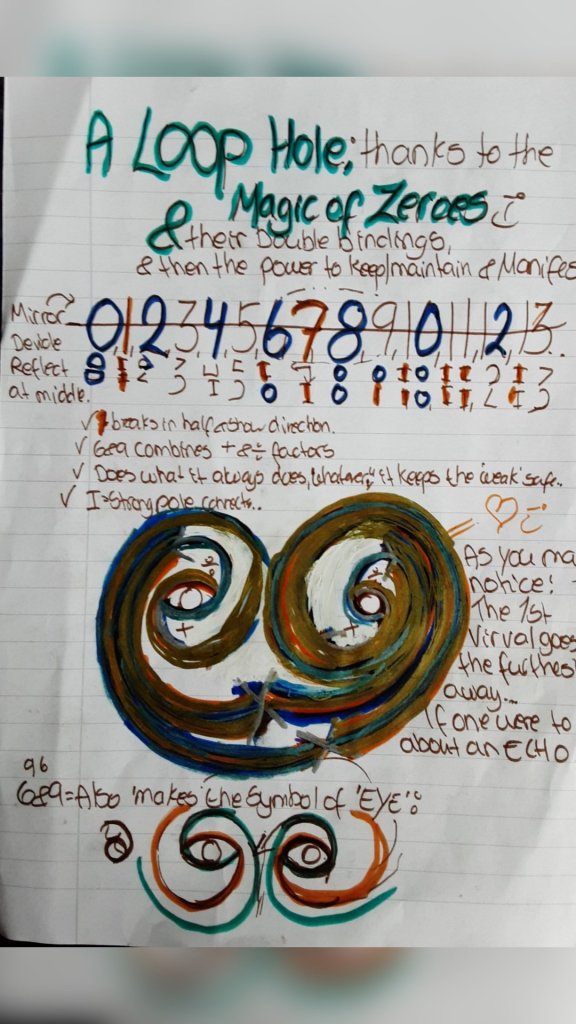 A LOOP Hole; thanks to the
Magic of Zeroes
& their Double bindings,
& then the power to keep/maintain & Manifes
Mirror
Devide
Reflect
at middle.
0, 1, 2, 3, 4, 5, 6, 7, 8, 9, 10, 11, 12, 13.
√ 7 breaks in half & show direction.
√ 6&9 combines + & ÷ factors
√ Does what it always does, whatever, it keeps the 'weak' safe..
√ I = Strong pole connects..
As you ma
notice!
The 1st
Virval goes
the furthes
away...
If one were to
about an ECHO
96
6&9 = Also 'makes' the symbol of 'EYE':